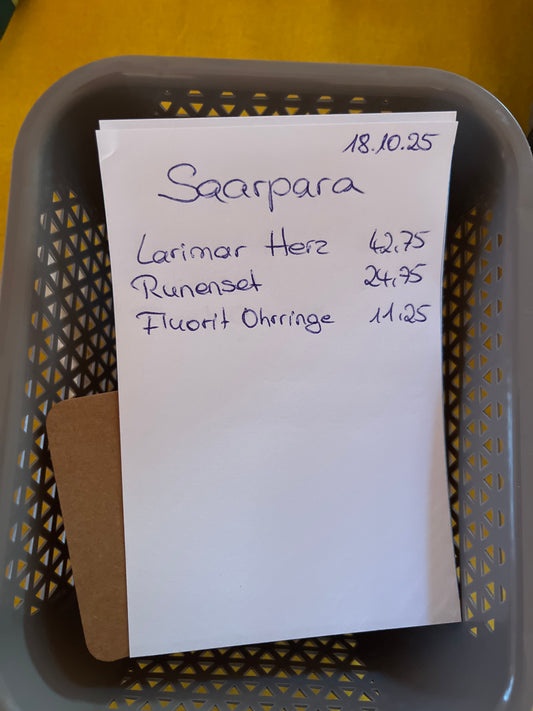 18.10.25
Saarpara
Larimar Herz 42,75
Runenset 24,75
Fluorit Ohrringe 11,25